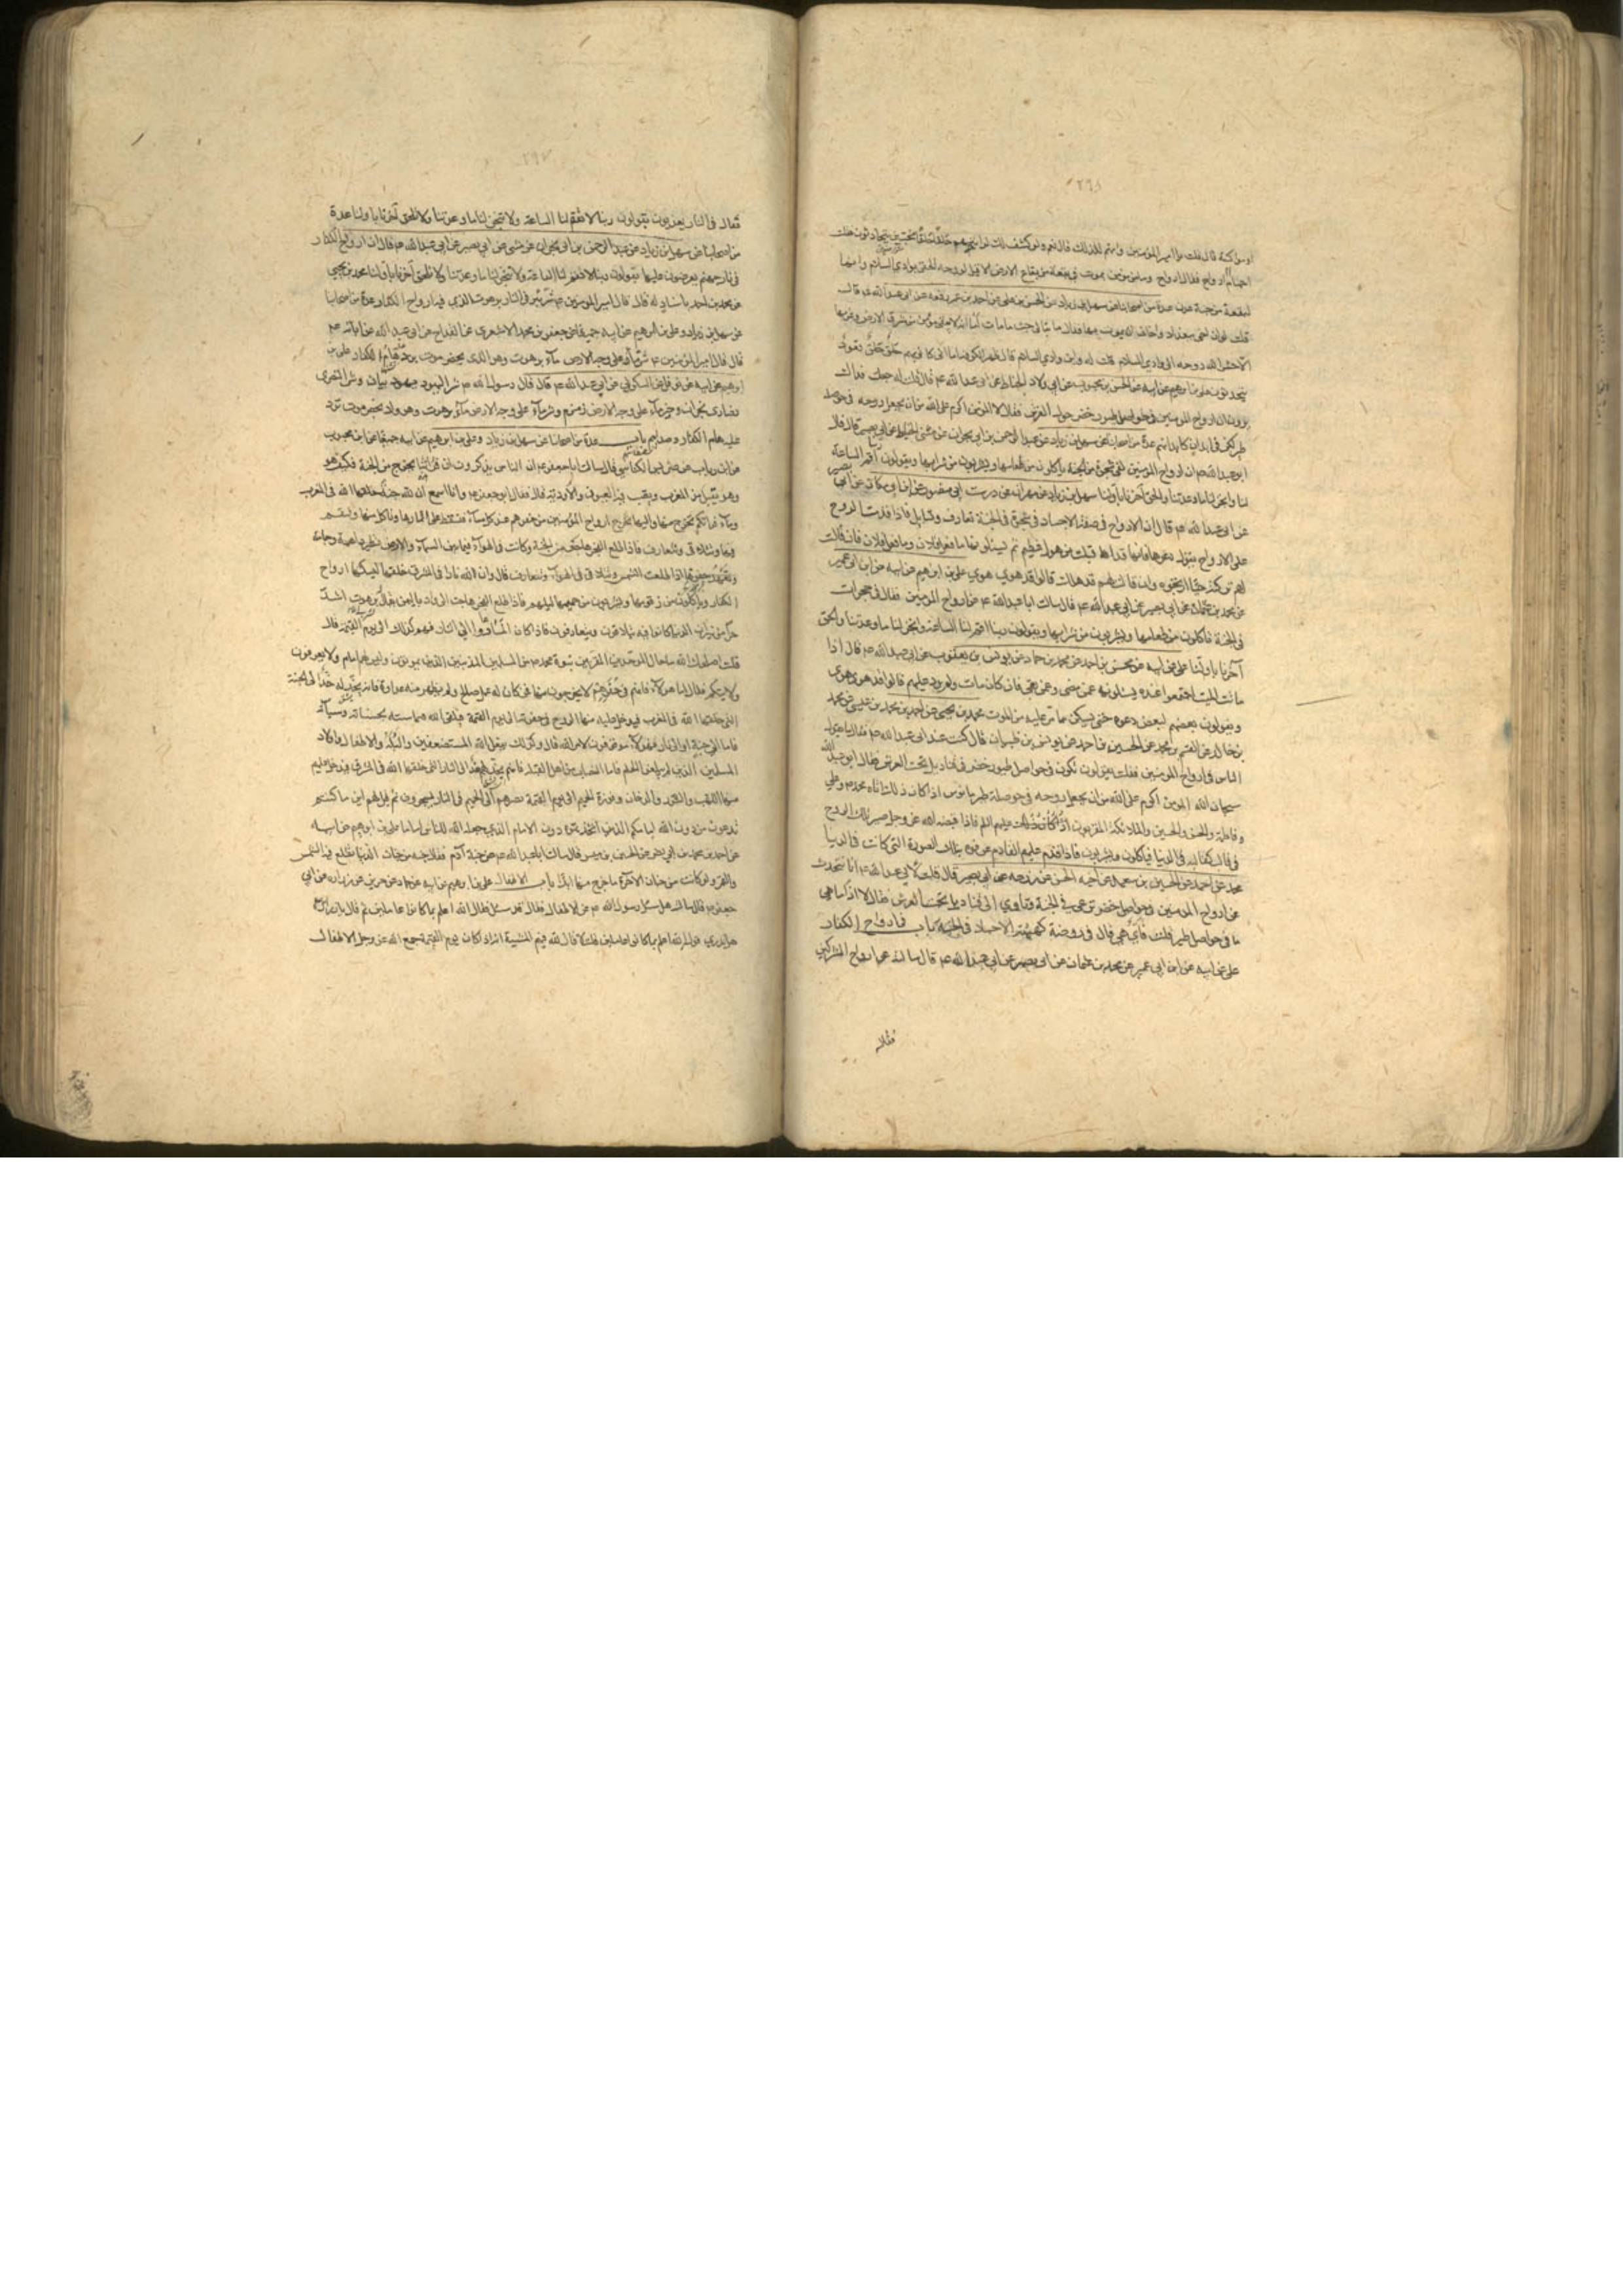 او مؤانسة قال قلت يا امير المؤمنين وانهم لكذلك قال نعم ولو كشف لك لرايتهم حلقا حلقا محتبين يتحادثون فقلت
اجسام ام ارواح فقال ارواح وما من مؤمن يموت في بقعة من بقاع الارض الا قيل لروحه الحقي بوادي السلام وانها
لبقعة من جنة عدن عدة من اصحابنا عن سهل بن زياد عن الحسن بن علي عن احمد بن عمر رفعه عن ابي عبد الله ع قال
قلت له ان اخي ببغداد واخاف ان يموت بها فقال ما تبالي حيث ما مات اما انه لا يبقى مؤمن في شرق الارض وغربها
الا حشر الله روحه الى وادي السلام قلت له واين وادي السلام قال ظهر الكوفة اما اني كاني بهم حلق حلق قعود
يتحدثون علي بن ابرهيم عن ابيه عن الحسن بن محبوب عن ابي ولاد الحناط عن ابي عبد الله ع قال قلت له جعلت فداك
يروون ان ارواح المؤمنين في حواصل طيور خضر حول العرش فقال لا المؤمن اكرم على الله من ان يجعل روحه في حوصلة
طير لكن في ابدان كابدانهم عدة من اصحابنا عن سهل بن زياد عن عبد الرحمن بن ابي نجران عن مثنى الحناط عن ابي بصير قال قال
ابو عبد الله ع ان ارواح المؤمنين لفي شجرة من الجنة ياكلون من طعامها ويشربون من شرابها ويقولون ربنا اقم الساعة
لنا وانجز لنا ما وعدتنا والحق آخرنا باولنا سهل بن زياد عن مهران عن درست ابي منصور عن ابن مسكان عن ابي بصير
عن ابي عبد الله ع قال ان الارواح في صفة الاجساد في شجرة في الجنة تعارف وتسايل فاذا قدمت الروح
على الارواح يقول دعوها فانها قد افلتت من هول عظيم ثم يسئلونها ما فعل فلان وما فعل فلان فان قالت
لهم تركته حيا ارتجوه وان قالت لهم قد هلك قالوا قد هوى هوى علي بن ابرهيم عن ابيه عن ابن ابي عمير
عن محمد بن عثمان عن ابي بصير عن ابي عبد الله ع قال سالت ابا عبد الله ع عن ارواح المؤمنين فقال في حجرات
في الجنة ياكلون من طعامها ويشربون من شرابها ويقولون ربنا اقم لنا الساعة وانجز لنا ما وعدتنا والحق
آخرنا باولنا علي عن ابيه عن محسن بن احمد عن محمد بن حماد عن يونس بن يعقوب عن ابي عبد الله ع قال اذا
مات الميت اجتمعوا عنده يسئلونه عمن مضى وعمن بقي فان كان مات ولم يرد عليهم قالوا قد هوى هوى
ويقولون بعضهم لبعض دعوه حتى يسكن مما مر عليه من الموت محمد بن يحيى عن احمد بن محمد بن عيسى عن محمد
بن خالد عن القسم بن محمد عن الحسين بن احمد عن يونس بن ظبيان قال كنت عند ابي عبد الله ع فقال ما يقول
الناس في ارواح المؤمنين فقلت يقولون تكون في حواصل طيور خضر في قناديل تحت العرش فقال ابو عبد الله
سبحان الله المؤمن اكرم على الله من ان يجعل روحه في حوصلة طير يا يونس اذا كان ذلك اتاه محمد ص وعلي
وفاطمة والحسن والحسين والملائكة المقربون فاذا قبضه الله عز وجل صير تلك الروح
في قالب كقالبه في الدنيا فياكلون ويشربون فاذا قدم عليهم القادم عرفوه بتلك الصورة التي كانت في الدنيا
محمد عن احمد عن الحسين بن سعيد عن اخيه الحسن عن زرعة عن ابي بصير قال قلت لابي عبد الله ع انا نتحدث
عن ارواح المؤمنين في حواصل خضر ترعى في الجنة وتاوي الى قناديل تحت العرش فقال لا اذا ما هي
ما في حواصل طير قلت فاين هي قال في روضة كهيئة الاجساد في الجنة باب في ارواح الكفار
علي عن ابيه عن ابن ابي عمير عن محمد بن عثمان عن ابي بصير عن ابي عبد الله ع قال سالته عن ارواح المشركين
فقال
فقال في النار يعذبون يقولون ربنا لا تقم لنا الساعة ولا تنجز لنا ما وعدتنا ولا تلحق آخرنا باولنا عدة
من اصحابنا عن سهل بن زياد عن عبد الرحمن بن ابي نجران عن مثنى عن ابي بصير عن ابي عبد الله ع قال ان ارواح الكفار
في نار جهنم يعرضون عليها يقولون ربنا لا تقم لنا الساعة ولا تنجز لنا ما وعدتنا ولا تلحق آخرنا باولنا محمد بن يحيى
عن محمد بن احمد باسناد له قال قال امير المؤمنين ع شر بئر في النار برهوت الذي فيه ارواح الكفار عدة من اصحابنا
عن سهل بن زياد وعلي بن ابرهيم عن ابيه جميعا عن جعفر بن محمد الاشعري عن القداح عن ابي عبد الله عن آبائه ع
قال قال امير المؤمنين ع شر ماء على وجه الارض ماء برهوت وهو الذي بحضرموت يرده هام الكفار علي بن
ابرهيم عن ابيه عن النوفلي عن السكوني عن ابي عبد الله ع قال قال رسول الله ص شر اليهود يهود بيسان وشر النصارى
نصارى نجران وخير ماء على وجه الارض زمزم وشر ماء على وجه الارض ماء برهوت وهو واد بحضرموت ترد
عليه هام الكفار وصداهم باب عدة من اصحابنا عن سهل بن زياد وعلي بن ابرهيم عن ابيه جميعا عن ابن محبوب
عن ابن رياب عن ضريس الكناسي قال سالت ابا جعفر ع ان الناس يذكرون ان فراتنا يخرج من الجنة فكيف هو
وهو يقبل من المغرب ويصب فيه العيون والاودية قال فقال ابو جعفر ع وانا اسمع ان لله جنة خلقها الله في المغرب
وماء فراتكم يخرج منها واليها تخرج ارواح المؤمنين من حفرهم عند كل مساء فتسقط على ثمارها وتاكل منها وتتنعم
فيها وتتلاقى وتتعارف فاذا طلع الفجر هاجت من الجنة وكانت في الهواء فيما بين السماء والارض تطير ذاهبة وجائية
وتعهد حفرها اذا طلعت الشمس وتتلاقى في الهواء وتتعارف قال وان لله نارا في المشرق خلقها ليسكنها ارواح
الكفار وياكلون من زقومها ويشربون من حميمها ليلهم فاذا طلع الفجر هاجت الى واد باليمن يقال له برهوت اشد
حرا من نيران الدنيا كانوا فيه يتلاقون ويتعارفون فاذا كان المساء عادوا الى النار فهم كذلك الى يوم القيمة قال
قلت اصلحك الله ما حال الموحدين المقرين بنبوة محمد ص من المسلمين المذنبين الذين يموتون وليس لهم امام ولا يعرفون
ولايتكم فقال اما هؤلاء فانهم في حفرهم لا يخرجون منها فمن كان له عمل صالح ولم يظهر منه عداوة فانه يخد له خدا الى الجنة
التي خلقها الله في المغرب فيدخل عليه منها الروح في حفرته الى يوم القيمة فيلقى الله فيحاسبه بحسناته وسيئاته
فاما الى جنة او الى نار فهؤلاء موقوفون لامر الله قال وكذلك يفعل الله بالمستضعفين والبله والاطفال واولاد
المسلمين الذين لم يبلغوا الحلم فاما النصاب من اهل القبلة فانهم يخد لهم خدا الى النار التي خلقها الله في المشرق فيدخل عليهم
منها اللهب والشرر والدخان وفورة الحميم الى يوم القيمة ثم مصيرهم الى الحميم في النار يسجرون ثم قيل لهم اين ما كنتم
تدعون من دون الله اين امامكم الذي اتخذتموه دون الامام الذي جعله الله للناس اماما علي بن ابرهيم عن ابيه
عن احمد بن محمد بن ابي نصر عن الحسين بن ميسر قال سالت ابا عبد الله ع عن جنة آدم فقال جنة من جنات الدنيا تطلع فيها الشمس
والقمر ولو كانت من جنان الآخرة ما خرج منها ابدا باب الاطفال علي بن ابرهيم عن ابيه عن حماد عن حريز عن زرارة عن ابي
جعفر ع قال سالته هل سئل رسول الله ص عن الاطفال فقال قد سئل فقال الله اعلم بما كانوا عاملين ثم قال يا زرارة
هل تدري قوله الله اعلم بما كانوا عاملين قلت لا قال لله فيهم المشية انه اذا كان يوم القيمة جمع الله عز وجل الاطفال